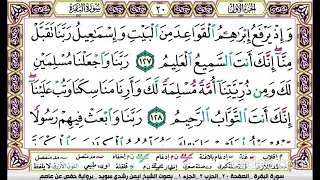 الجزء الأول ٢٠ سورة البقرة
وَإِذْ يَرْفَعُ إِبْرَٰهِـۧمُ ٱلْقَوَاعِدَ مِنَ ٱلْبَيْتِ وَإِسْمَـٰعِيلُ رَبَّنَا تَقَبَّلْ
مِنَّآ ۖ إِنَّكَ أَنتَ ٱلسَّمِيعُ ٱلْعَلِيمُ ١٢٧ رَبَّنَا وَٱجْعَلْنَا مُسْلِمَيْنِ
لَكَ وَمِن ذُرِّيَّتِنَآ أُمَّةً مُّسْلِمَةً لَّكَ وَأَرِنَا مَنَاسِكَنَا وَتُبْ عَلَيْنَآ ۖ
إِنَّكَ أَنتَ ٱلتَّوَّابُ ٱلرَّحِيمُ ١٢٨ رَبَّنَا وَٱبْعَثْ فِيهِمْ رَسُولًا
سورة البقرة الصفحة ٢٠ الحزب ٢ الجزء ١ بصوت الشيخ أيمن رشدي سويد برواية حفص عن عاصم